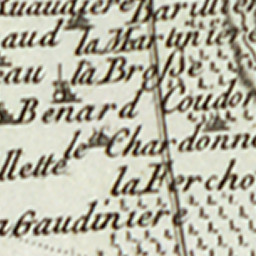 Ruaudiere Barillier
aud la Martiniere
eau la Broße
Benard Coudor
le Chardonne
llette
la Fercho
a Gaudiniere